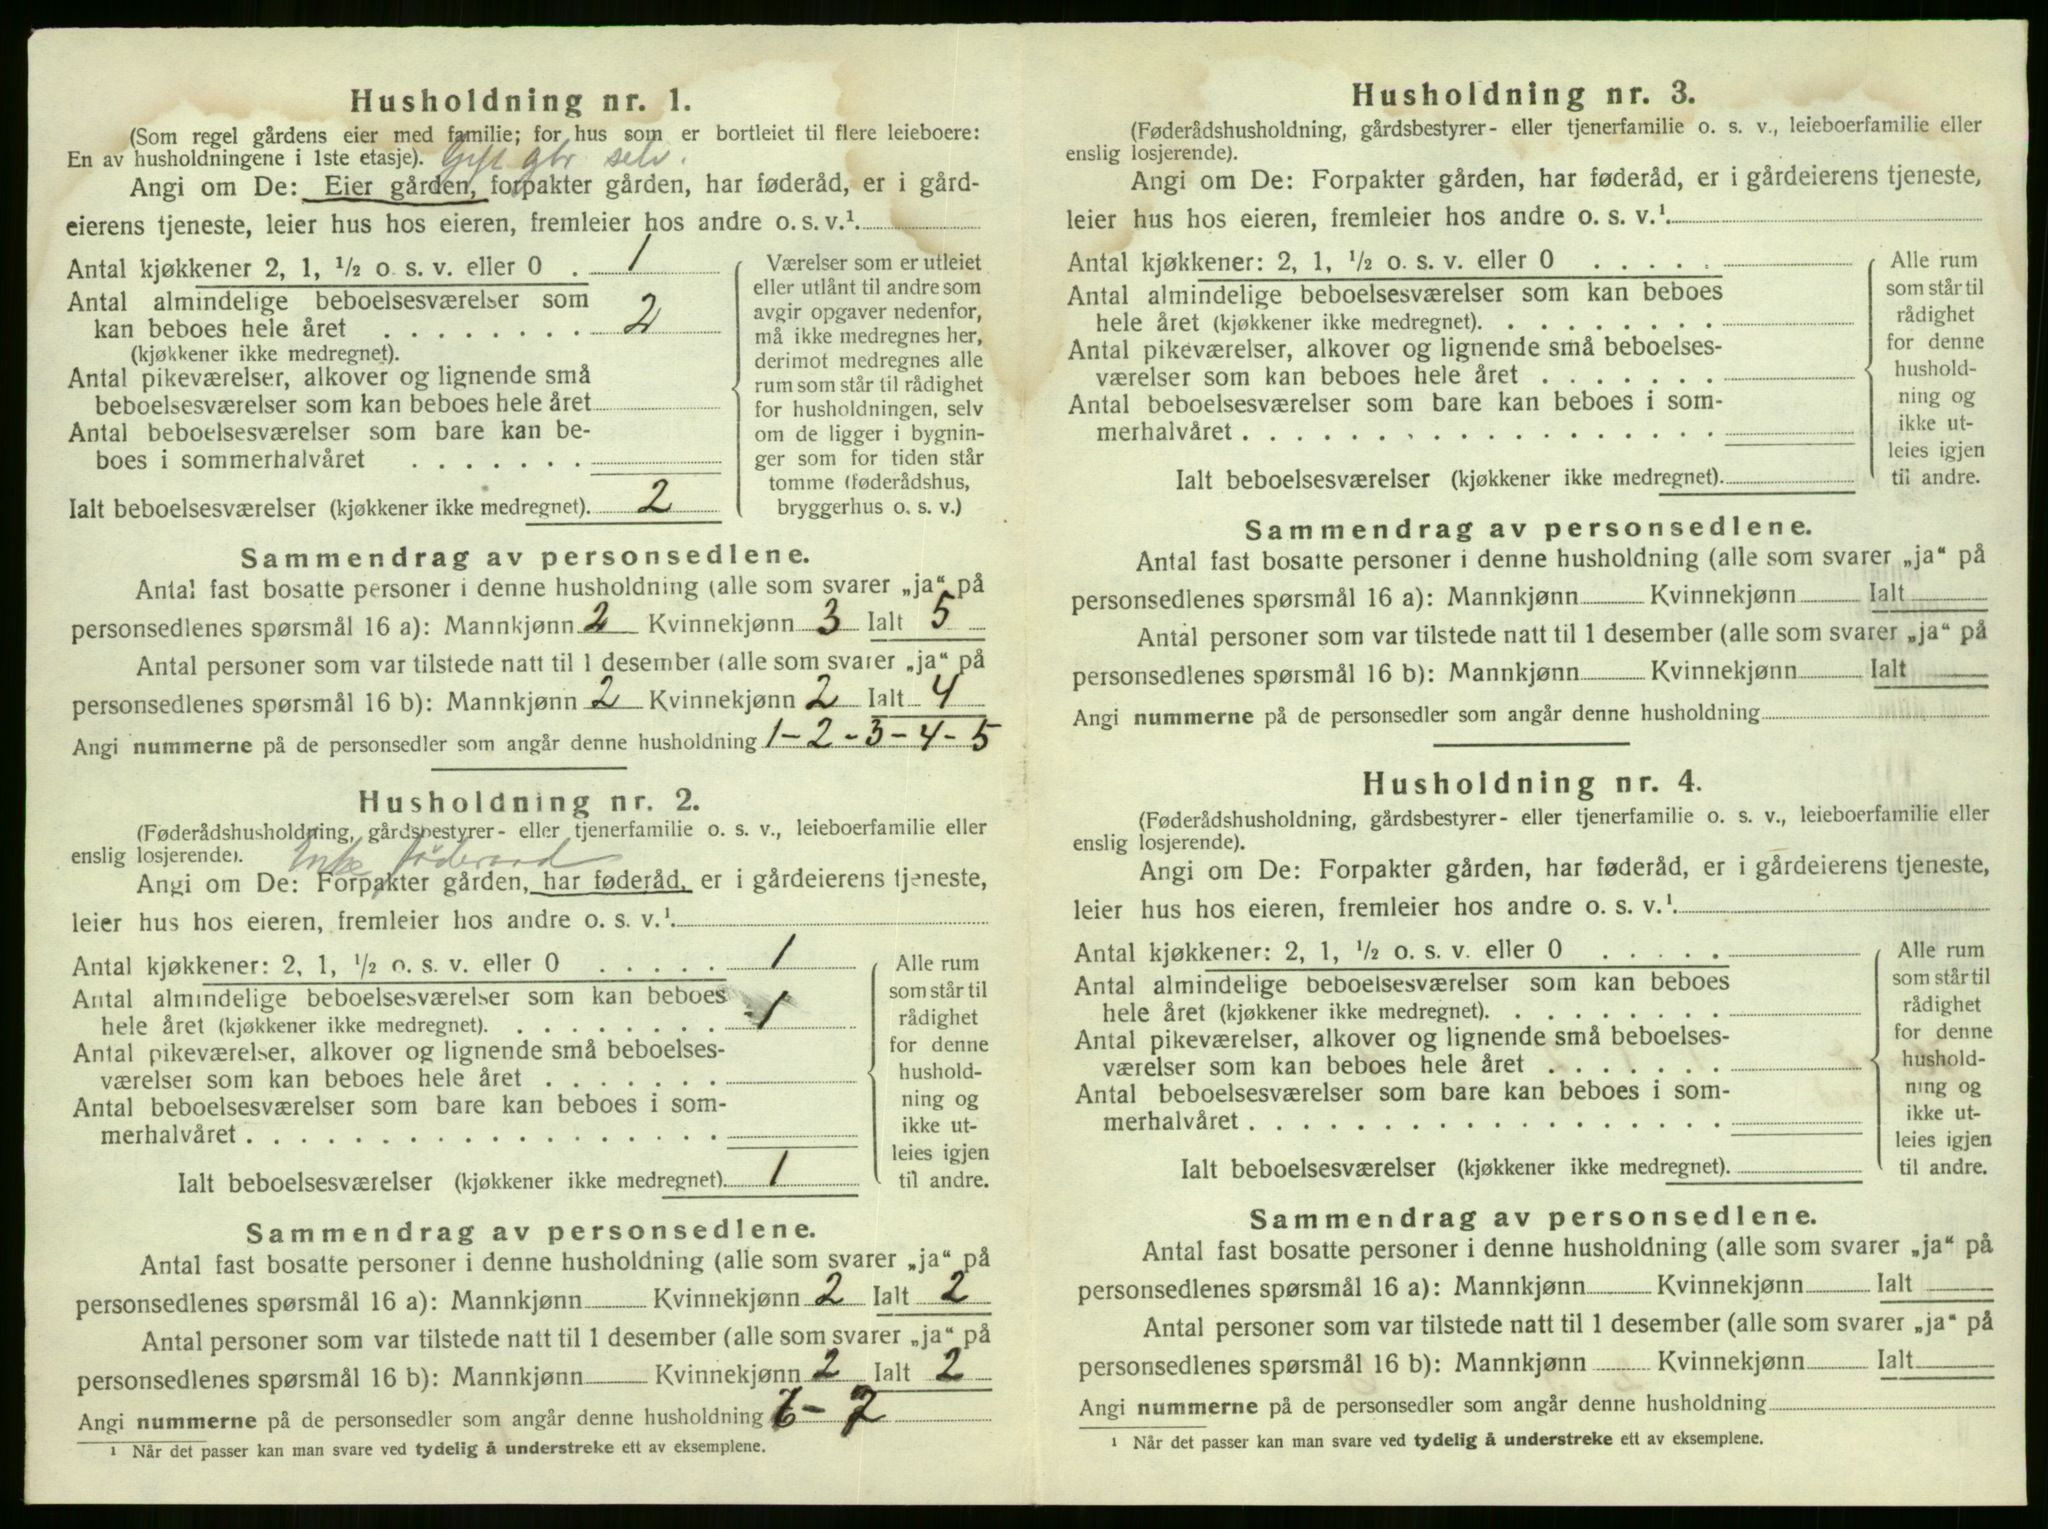 Husholdning nr. 1.
(Som regel gårdens eier med familie; for hus som er bortleiet til flere leieboere:
En av husholdningene i 1ste etasje). Gift gbr selv.
Angi om De: Eier gården, forpakter gården, har føderåd, er i gård-
eierens tjeneste, leier hus hos eieren, fremleier hos andre o. s. v.¹
Antal kjøkkener 2, 1, ½ o. s. v. eller 0 . 1
Antal almindelige beboelsesværelser som
kan beboes hele året . . . . . . . . 2
(kjøkkener ikke medregnet).
Antal pikeværelser, alkover og lignende små
beboelsesværelser som kan beboes hele året
Antal beboelsesværelser som bare kan be-
boes i sommerhalvåret . . . . . . .
Ialt beboelsesværelser (kjøkkener ikke medregnet). 2
Værelser som er utleiet
eller utlånt til andre som
avgir opgaver nedenfor,
må ikke medregnes her,
derimot medregnes alle
rum som står til rådighet
for husholdningen, selv
om de ligger i bygnin-
ger som for tiden står
tomme (føderådshus,
bryggerhus o. s. v.)
Sammendrag av personsedlene.
Antal fast bosatte personer i denne husholdning (alle som svarer „ja“ på
personsedlenes spørsmål 16 a): Mannkjønn 2 Kvinnekjønn 3 Ialt 5
Antal personer som var tilstede natt til 1 desember (alle som svarer „ja“ på
personsedlenes spørsmål 16 b): Mannkjønn 2 Kvinnekjønn 2 Ialt 4
Angi nummerne på de personsedler som angår denne husholdning 1-2-3-4-5
Husholdning nr. 2.
(Føderådshusholdning, gårdsbestyrer- eller tjenerfamilie o. s. v., leieboerfamilie eller
enslig losjerende). Enke føderaad
Angi om De: Forpakter gården, har føderåd, er i gårdeierens tjeneste,
leier hus hos eieren, fremleier hos andre o. s. v.¹
Antal kjøkkener: 2, 1, ½ o. s. v. eller 0 . . . . . 1
Antal almindelige beboelsesværelser som kan beboes
hele året (kjøkkener ikke medregnet). . . . . . . . . 1
Antal pikeværelser, alkover og lignende små beboelses-
værelser som kan beboes hele året . . . . . . .
Antal beboelsesværelser som bare kan beboes i som-
merhalvåret . . . . . . . . . . . . . . . . . .
Ialt beboelsesværelser (kjøkkener ikke medregnet). 1
Alle rum
som står til
rådighet
for denne
hushold-
ning og
ikke ut-
leies igjen
til andre.
Sammendrag av personsedlene.
Antal fast bosatte personer i denne husholdning (alle som svarer „ja“ på
personsedlenes spørsmål 16 a): Mannkjønn Kvinnekjønn 2 Ialt 2
Antal personer som var tilstede natt til 1 desember (alle som svarer „ja“ på
personsedlenes spørsmål 16 b): Mannkjønn Kvinnekjønn 2 Ialt 2
Angi nummerne på de personsedler som angår denne husholdning 6-7
¹ Når det passer kan man svare ved tydelig å understreke ett av eksemplene.
Husholdning nr. 3.
(Føderådshusholdning, gårdsbestyrer- eller tjenerfamilie o. s. v., leieboerfamilie eller
enslig losjerende).
Angi om De: Forpakter gården, har føderåd, er i gårdeierens tjeneste,
leier hus hos eieren, fremleier hos andre o. s. v.¹
Antal kjøkkener: 2, 1, ½ o. s. v. eller 0 . . . . .
Antal almindelige beboelsesværelser som kan beboes
hele året (kjøkkener ikke medregnet). . . . . . . . .
Antal pikeværelser, alkover og lignende små beboelses-
værelser som kan beboes hele året . . . . . . .
Antal beboelsesværelser som bare kan beboes i som-
merhalvåret . . . . . . . . . . . . . . . . . .
Ialt beboelsesværelser (kjøkkener ikke medregnet).
Alle rum
som står til
rådighet
for denne
hushold-
ning og
ikke ut-
leies igjen
til andre.
Sammendrag av personsedlene.
Antal fast bosatte personer i denne husholdning (alle som svarer „ja“ på
personsedlenes spørsmål 16 a): Mannkjønn Kvinnekjønn Ialt
Antal personer som var tilstede natt til 1 desember (alle som svarer „ja“ på
personsedlenes spørsmål 16 b): Mannkjønn Kvinnekjønn Ialt
Angi nummerne på de personsedler som angår denne husholdning
Husholdning nr. 4.
(Føderådshusholdning, gårdsbestyrer- eller tjenerfamilie o. s. v., leieboerfamilie eller
enslig losjerende).
Angi om De: Forpakter gården, har føderåd, er i gårdeierens tjeneste,
leier hus hos eieren, fremleier hos andre o. s. v.¹
Antal kjøkkener: 2, 1, ½ o. s. v. eller 0 . . . . .
Antal almindelige beboelsesværelser som kan beboes
hele året (kjøkkener ikke medregnet). . . . . . . . .
Antal pikeværelser, alkover og lignende små beboelses-
værelser som kan beboes hele året . . . . . . .
Antal beboelsesværelser som bare kan beboes i som-
merhalvåret . . . . . . . . . . . . . . . . . .
Ialt beboelsesværelser (kjøkkener ikke medregnet).
Alle rum
som står til
rådighet
for denne
hushold-
ning og
ikke ut-
leies igjen
til andre.
Sammendrag av personsedlene.
Antal fast bosatte personer i denne husholdning (alle som svarer „ja“ på
personsedlenes spørsmål 16 a): Mannkjønn Kvinnekjønn Ialt
Antal personer som var tilstede natt til 1 desember (alle som svarer „ja“ på
personsedlenes spørsmål 16 b): Mannkjønn Kvinnekjønn Ialt
Angi nummerne på de personsedler som angår denne husholdning
¹ Når det passer kan man svare ved tydelig å understreke ett av eksemplene.